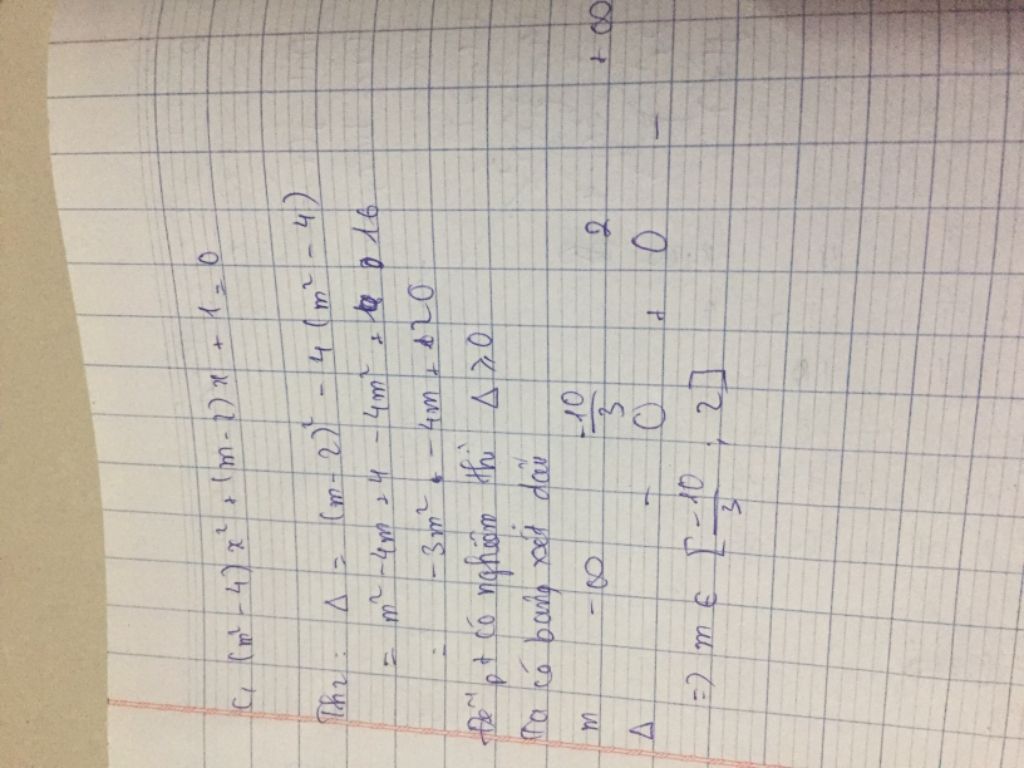 c, (m² - 4)x² + (m - 2)x + 1 = 0
Th2: Δ = (m - 2)² - 4(m² - 4)
= m² - 4m + 4 - 4m² + 16
= -3m² - 4m + 20
Để pt có nghiệm thì Δ ≥ 0
Ta có bảng xét dấu
m -∞ -10/3 2 +∞
Δ - 0 + 0 -
=) m ∈ [-10/3 ; 2]